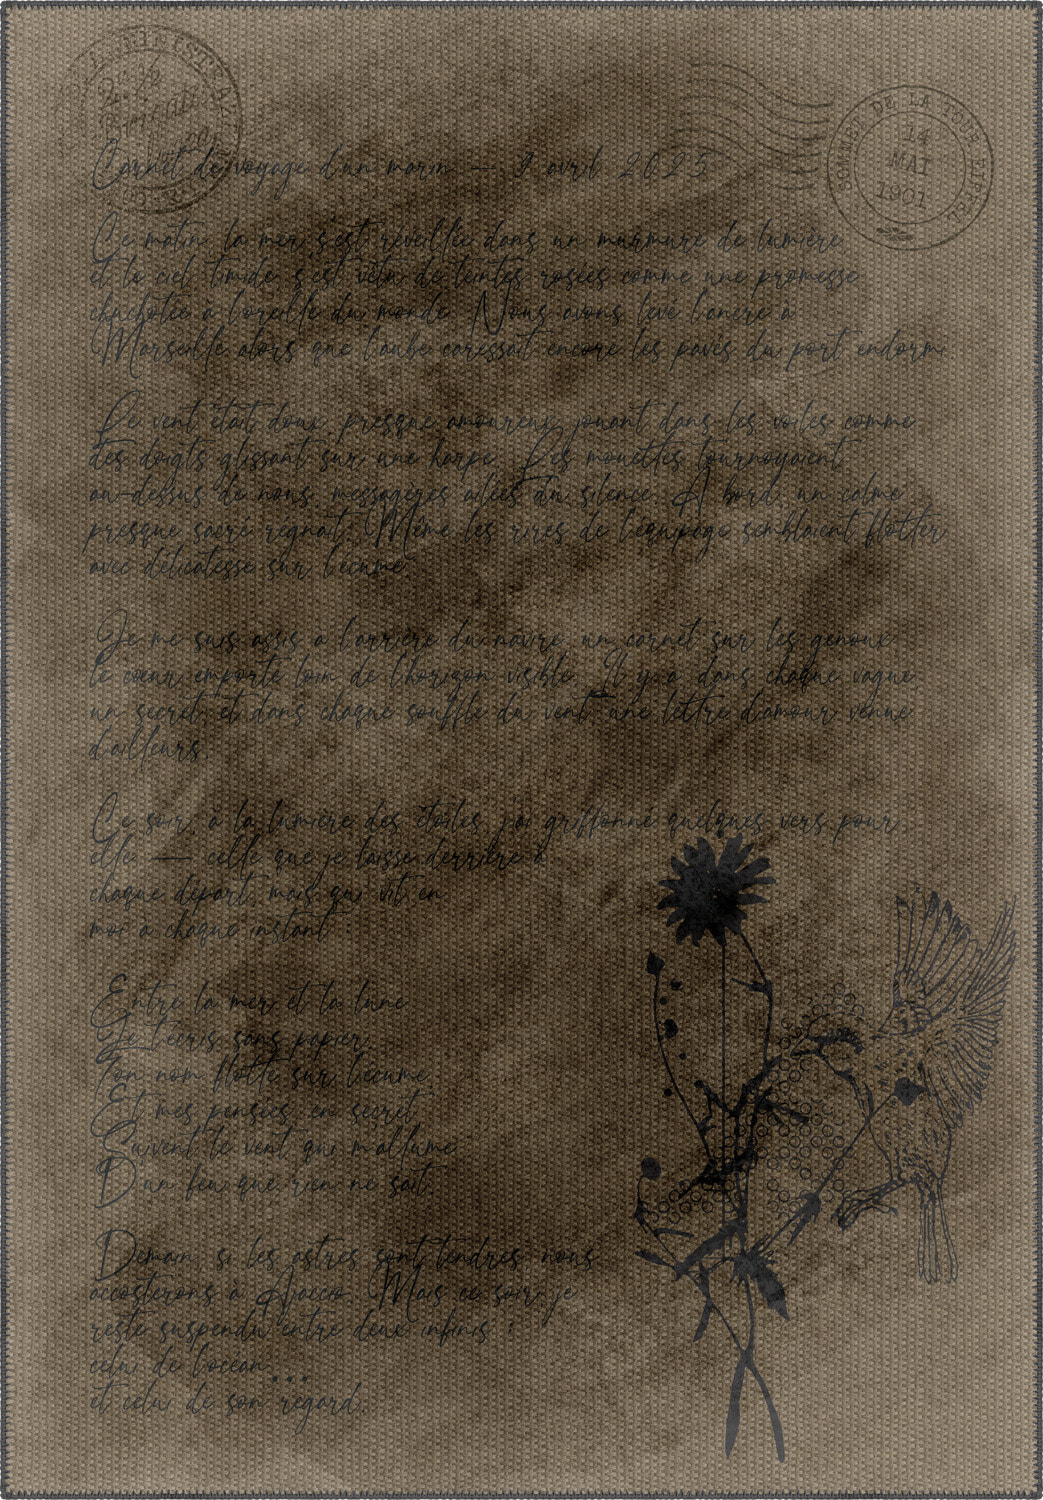 2e
SOMMET DE LA TOUR EIFFEL
14
MAI
1901
Carnet de voyage d'un marin — 9 avril 2025
Ce matin, la mer s'est réveillée dans un murmure de lumière
et le ciel timide s'est vêtu de teintes rosées comme une promesse
chuchotée à l'oreille du monde. Nous avons levé l'ancre à
Marseille alors que l'aube caressait encore les pavés du port endormi
Le vent était doux, presque amoureux, jouant dans les voiles comme
des doigts glissant sur une harpe. Les mouettes tournoyaient
au-dessus de nous, messagères ailées du silence. À bord, un calme
presque sacré régnait. Même les rires de l'équipage semblaient flotter
avec délicatesse sur l'écume
Je me suis assis à l'arrière du navire, un carnet sur les genoux
le cœur emporté loin de l'horizon visible. Il y a dans chaque vague
un secret, et dans chaque souffle du vent, une lettre d'amour venue
d'ailleurs
Ce soir, à la lumière des étoiles, j'ai griffonné quelques vers pour
elle — celle que je laisse derrière à
chaque départ, mais qui vit en
moi à chaque instant :
Entre la mer et la lune
Je t'écris sans papier,
Ton nom flotte sur l'écume,
Et mes pensées, en secret,
Suivent le vent qui m'allume
D'un feu que rien ne sait.
Demain, si les astres sont tendres, nous
accosterons à Ajaccio. Mais ce soir, je
reste suspendu entre deux infinis :
celui de l'océan...
et celui de son regard.